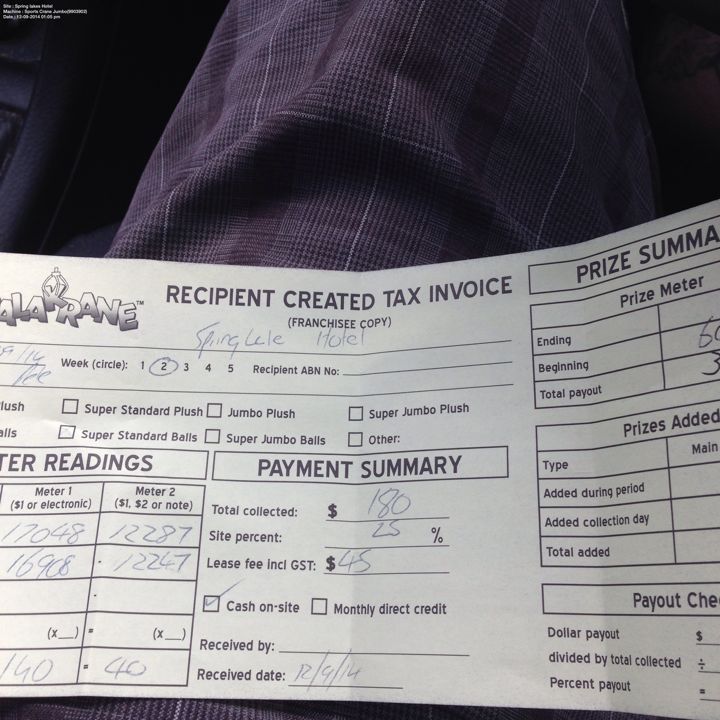 Site : Spring lakes Hotel
Machine : Sports Crane Jumbo(9903902)
Date : 12-09-2014 01:05 pm
ALA RANE™
RECIPIENT CREATED TAX INVOICE
(FRANCHISEE COPY)
Hotel
9/14 Week (circle): 1 2 3 4 5 Recipient ABN No:
lush Super Standard Plush Jumbo Plush Super Jumbo Plush
alls Super Standard Balls Super Jumbo Balls Other:
TER READINGS
Meter 1 Meter 2
($1 or electronic) ($1, $2 or note)
17048 12287
16908 - 12247
(x__) = (x__)
140 = 40
PAYMENT SUMMARY
Total collected: $ 180
Site percent: 25 %
Lease fee incl GST: $ 45
Cash on-site Monthly direct credit
Received by:
Received date: 12/9/14
PRIZE SUMMA
Prize Meter
Ending
Beginning
Total payout
Prizes Added
Type Main
Added during period
Added collection day
Total added
Payout Chec
Dollar payout $
divided by total collected ÷
Percent payout =